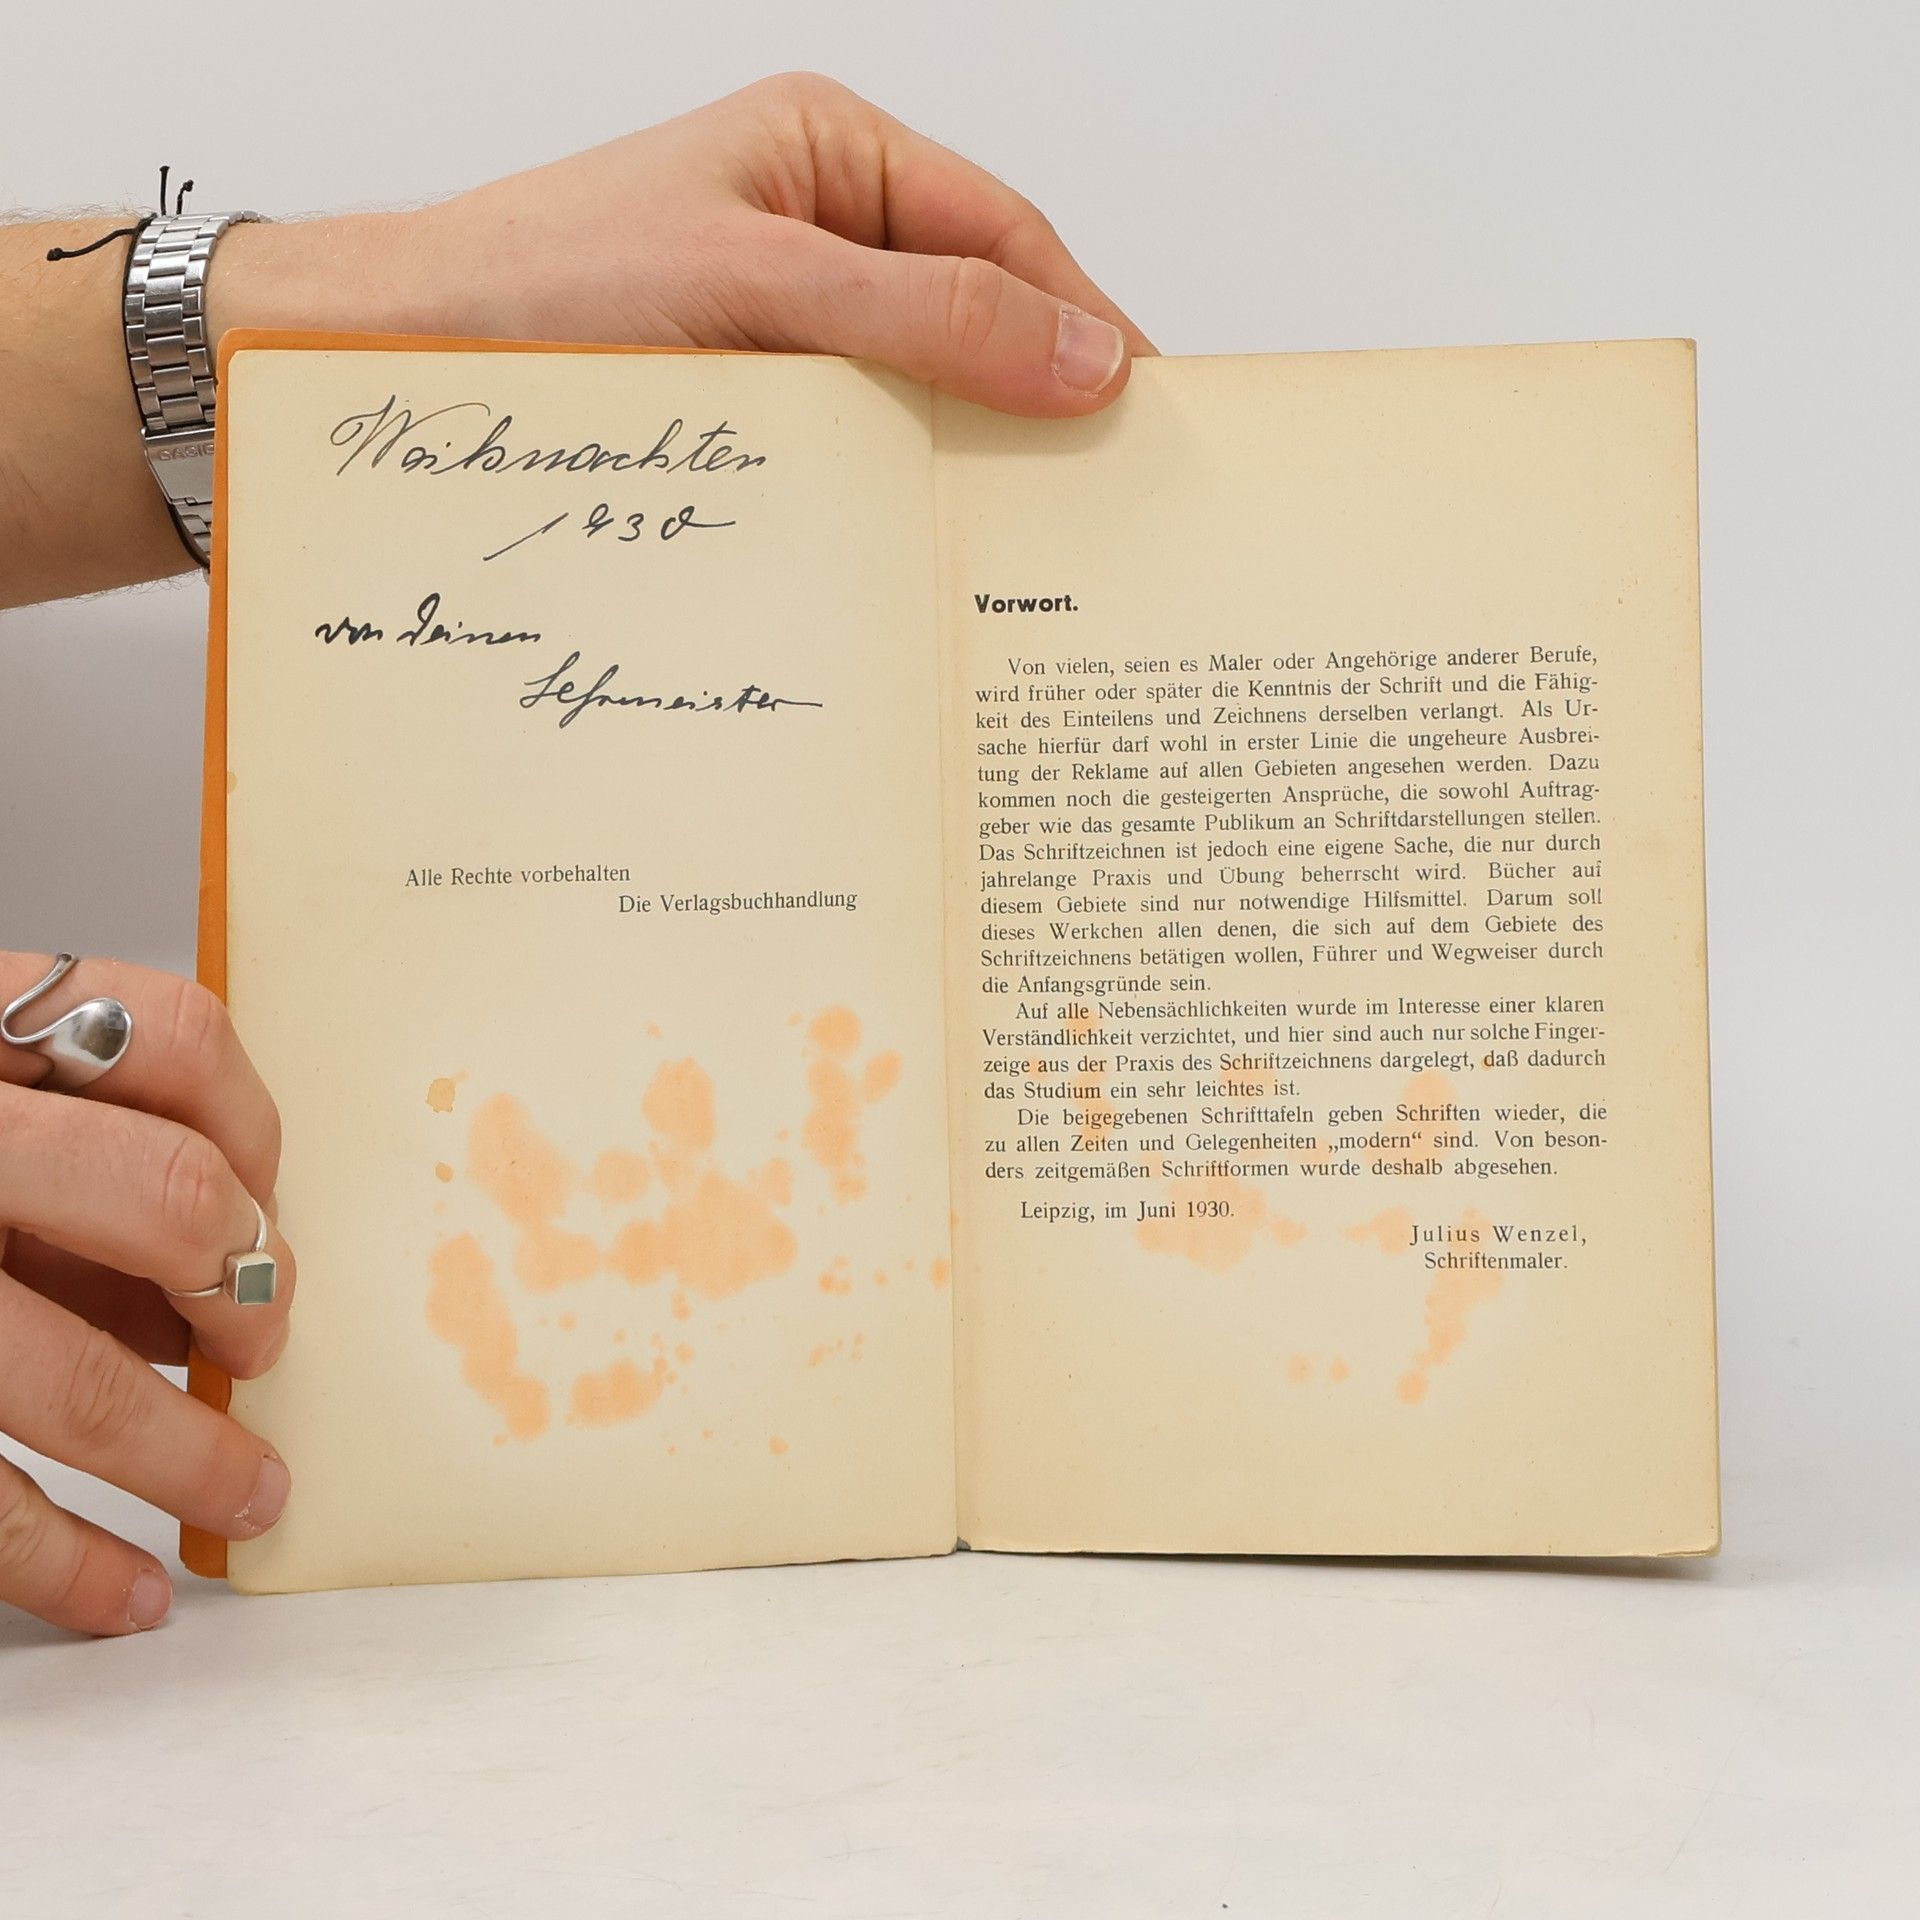 CASIO
Weihnachten
1930
von Deinen
Lehrmeister
Alle Rechte vorbehalten
Die Verlagsbuchhandlung
Vorwort.
Von vielen, seien es Maler oder Angehörige anderer Berufe,
wird früher oder später die Kenntnis der Schrift und die Fähig-
keit des Einteilens und Zeichnens derselben verlangt. Als Ur-
sache hierfür darf wohl in erster Linie die ungeheure Ausbrei-
tung der Reklame auf allen Gebieten angesehen werden. Dazu
kommen noch die gesteigerten Ansprüche, die sowohl Auftrag-
geber wie das gesamte Publikum an Schriftdarstellungen stellen.
Das Schriftzeichnen ist jedoch eine eigene Sache, die nur durch
jahrelange Praxis und Übung beherrscht wird. Bücher auf
diesem Gebiete sind nur notwendige Hilfsmittel. Darum soll
dieses Werkchen allen denen, die sich auf dem Gebiete des
Schriftzeichnens betätigen wollen, Führer und Wegweiser durch
die Anfangsgründe sein.
Auf alle Nebensächlichkeiten wurde im Interesse einer klaren
Verständlichkeit verzichtet, und hier sind auch nur solche Finger-
zeige aus der Praxis des Schriftzeichnens dargelegt, daß dadurch
das Studium ein sehr leichtes ist.
Die beigegebenen Schrifttafeln geben Schriften wieder, die
zu allen Zeiten und Gelegenheiten „modern“ sind. Von beson-
ders zeitgemäßen Schriftformen wurde deshalb abgesehen.
Leipzig, im Juni 1930.
Julius Wenzel,
Schriftenmaler.